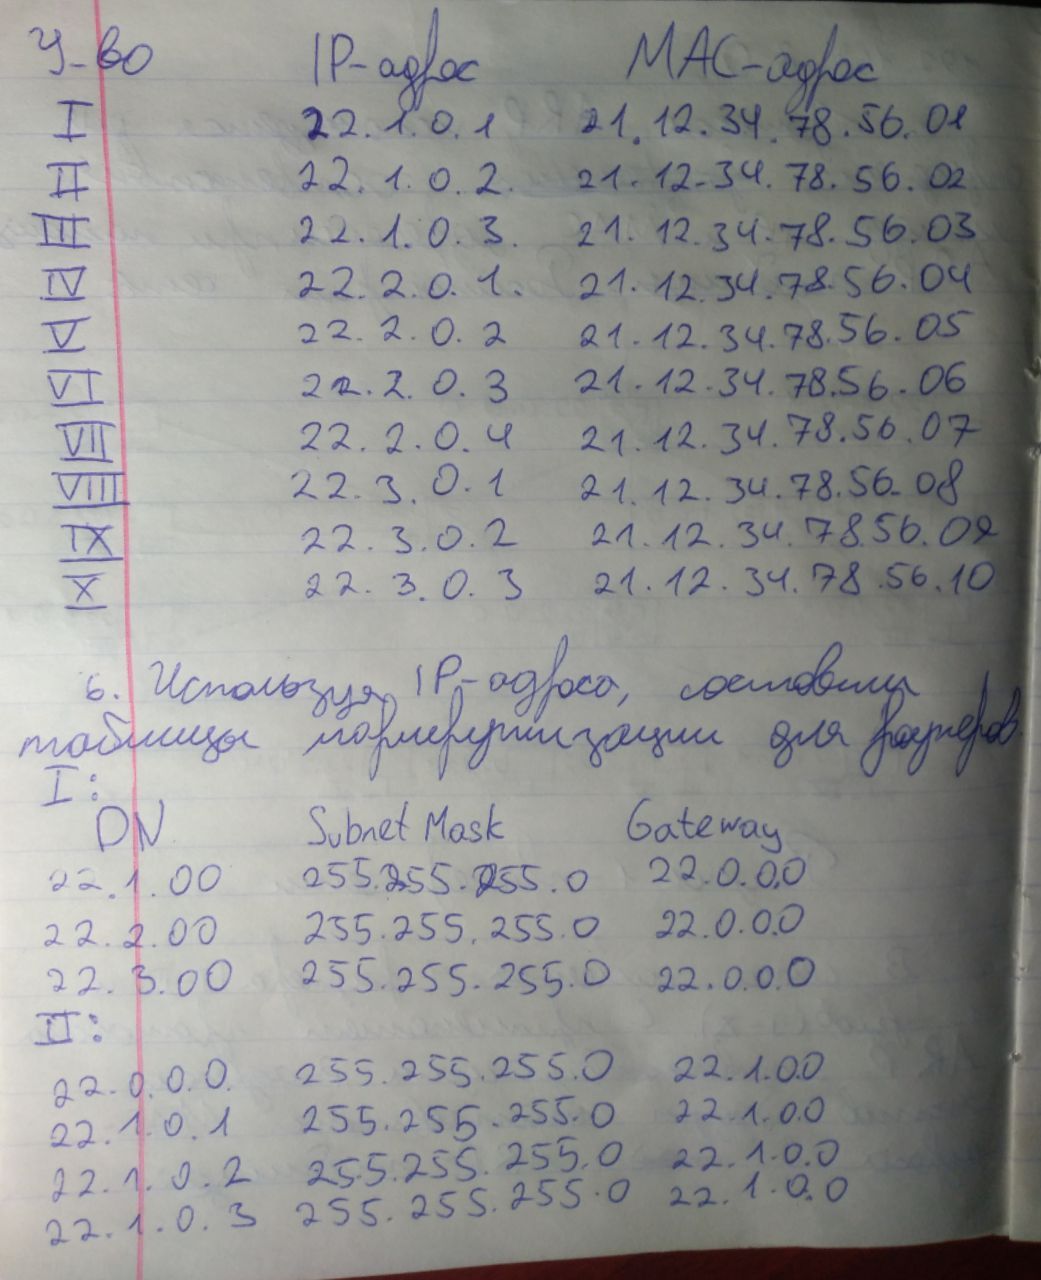 У-во IP-адрес MAC-адрес
I 22.1.0.1 21.12.34.78.56.01
II 22.1.0.2. 21.12.34.78.56.02
III 22.1.0.3. 21.12.34.78.56.03
IV 22.2.0.1. 21.12.34.78.56.04
V 22.2.0.2 21.12.34.78.56.05
VI 22.2.0.3 21.12.34.78.56.06
VII 22.2.0.4 21.12.34.78.56.07
VIII 22.3.0.1 21.12.34.78.56.08
IX 22.3.0.2 21.12.34.78.56.09
X 22.3.0.3 21.12.34.78.56.10
6. Используя IP-адреса, составим
таблицы маршрутизации для роутеров.
I:
DN Subnet Mask Gateway
22.1.00 255.255.255.0 22.0.0.0
22.2.00 255.255.255.0 22.0.0.0
22.3.00 255.255.255.0 22.0.0.0
II:
22.0.0.0. 255.255.255.0 22.1.0.0
22.1.0.1 255.255.255.0 22.1.0.0
22.1.0.2 255.255.255.0 22.1.0.0
22.1.0.3 255.255.255.0 22.1.0.0